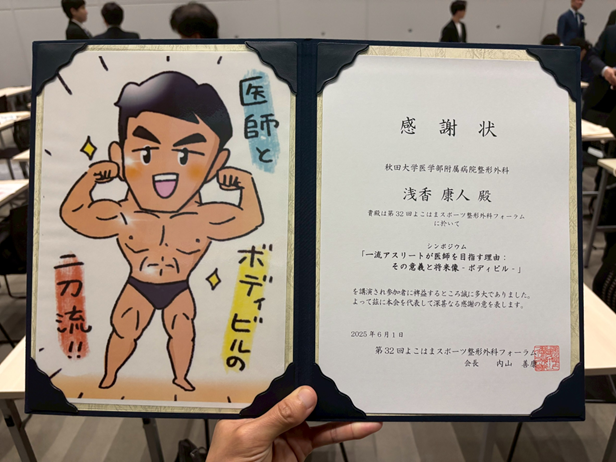 医師と
ボディビルの
二刀流!!
感謝状
秋田大学医学部附属病院整形外科
浅香 康人 殿
貴殿は第32回よこはまスポーツ整形外科フォーラム
に於いて
シンポジウム
「一流アスリートが医師を目指す理由:
その意義と将来像-ボディビル-」
を講演され参加者に裨益するところ誠に多大でありました。
よって茲に本会を代表して深甚なる感謝の意を表します。
2025年6月1日
第32回よこはまスポーツ整形外科フォーラム
会長 内山 善康